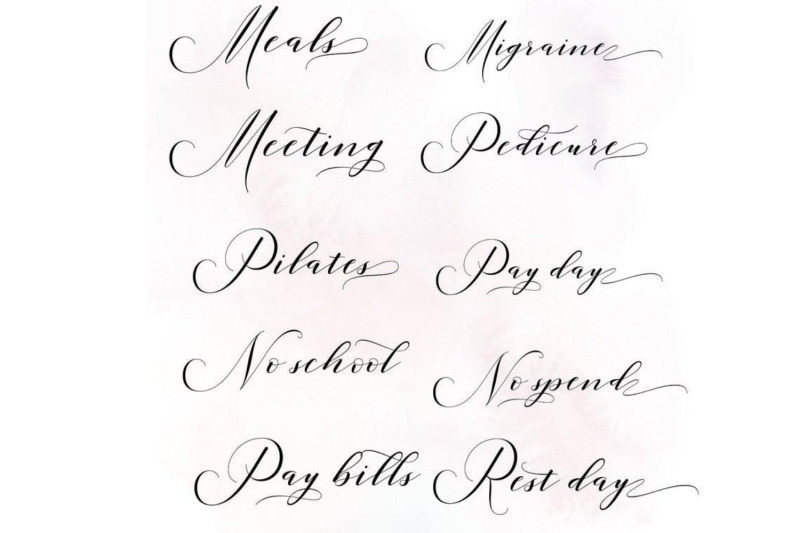 Meals
Migraine
Meeting
Pedicure
Pilates
Pay day
No school
No spend
Pay bills
Rest day